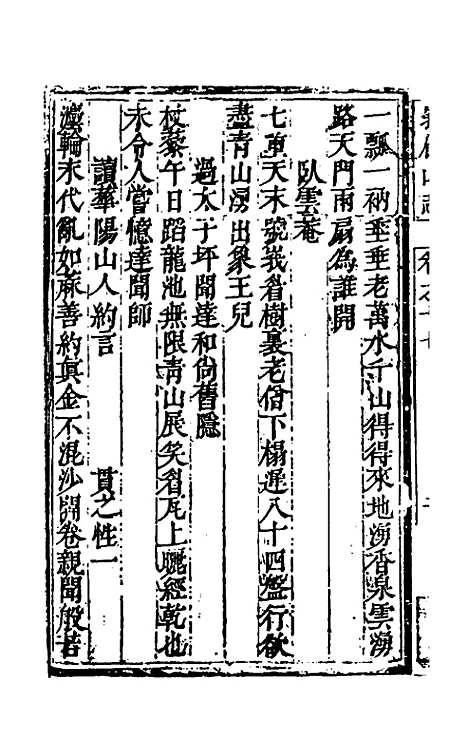 一瓢一衲垂垂老萬水千山得得來地湧香泉雲湧
路天門兩扇為誰開
臥雲菴
七重天末號峩眉樹裏老僧下榻遲八十四盤行欲
盡青山湧出象王兒
過太子坪聞達和尚舊隱
杖藜午日蹈龍池無限青山展笑眉瓦上曬經乾也
未令人當憶達聞師
讀華陽山人約言
貫之性一
輪末代亂如麻善約真金不混沙開卷親聞般若